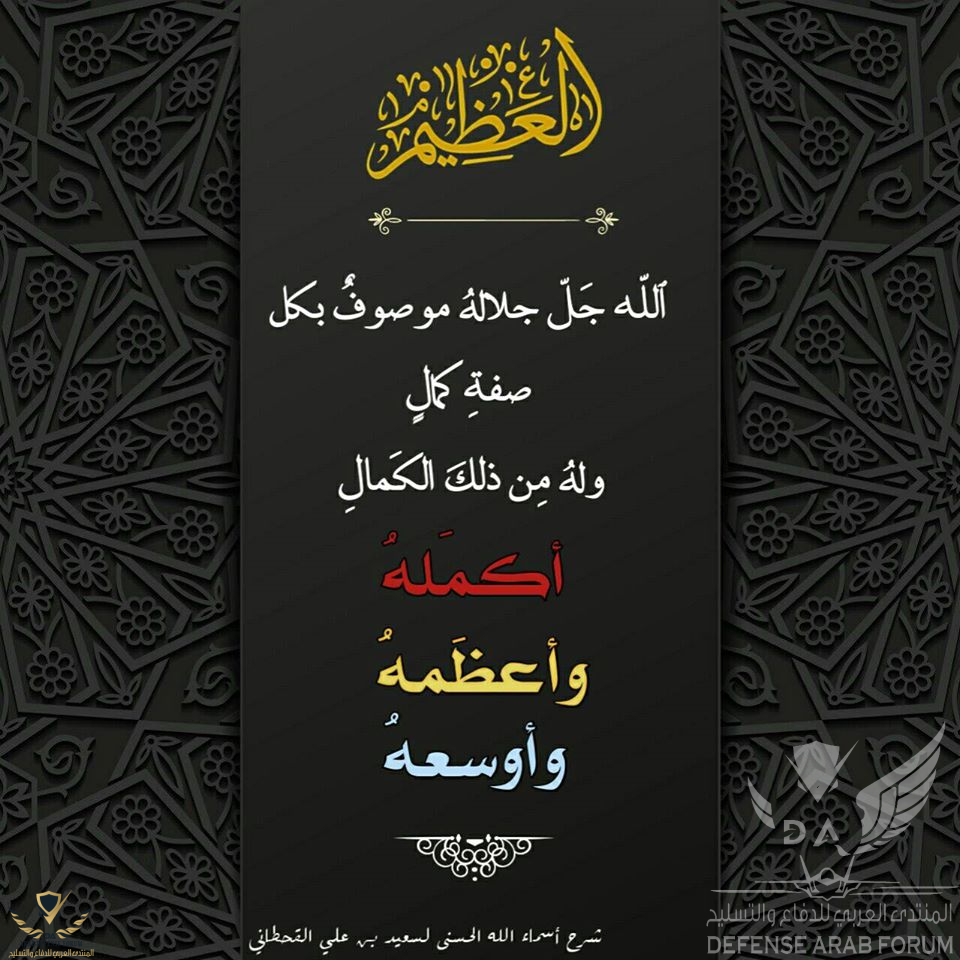 العَظِيم
ٱللّه جَلّ جلالهُ موصوفٌ بكل
صفةِ كمالٍ
ولهُ مِن ذلكَ الكَمالِ
أكمَلهُ
وأعظَمهُ
وأوسعهُ
شرح أسماء الله الحسنى لسعيد بن علي القحطاني
DA
المنتدى العربي للدفاع والتسليح
DEFENSE ARAB FORUM
المنتدى العربي للدفاع والتسليح